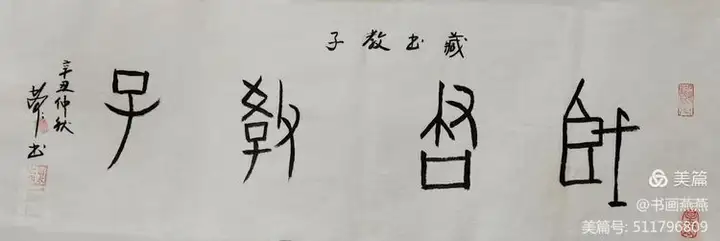 藏书教子
藏书教子
辛丑仲秋
书
美篇
@书画燕燕
美篇号: 511796809